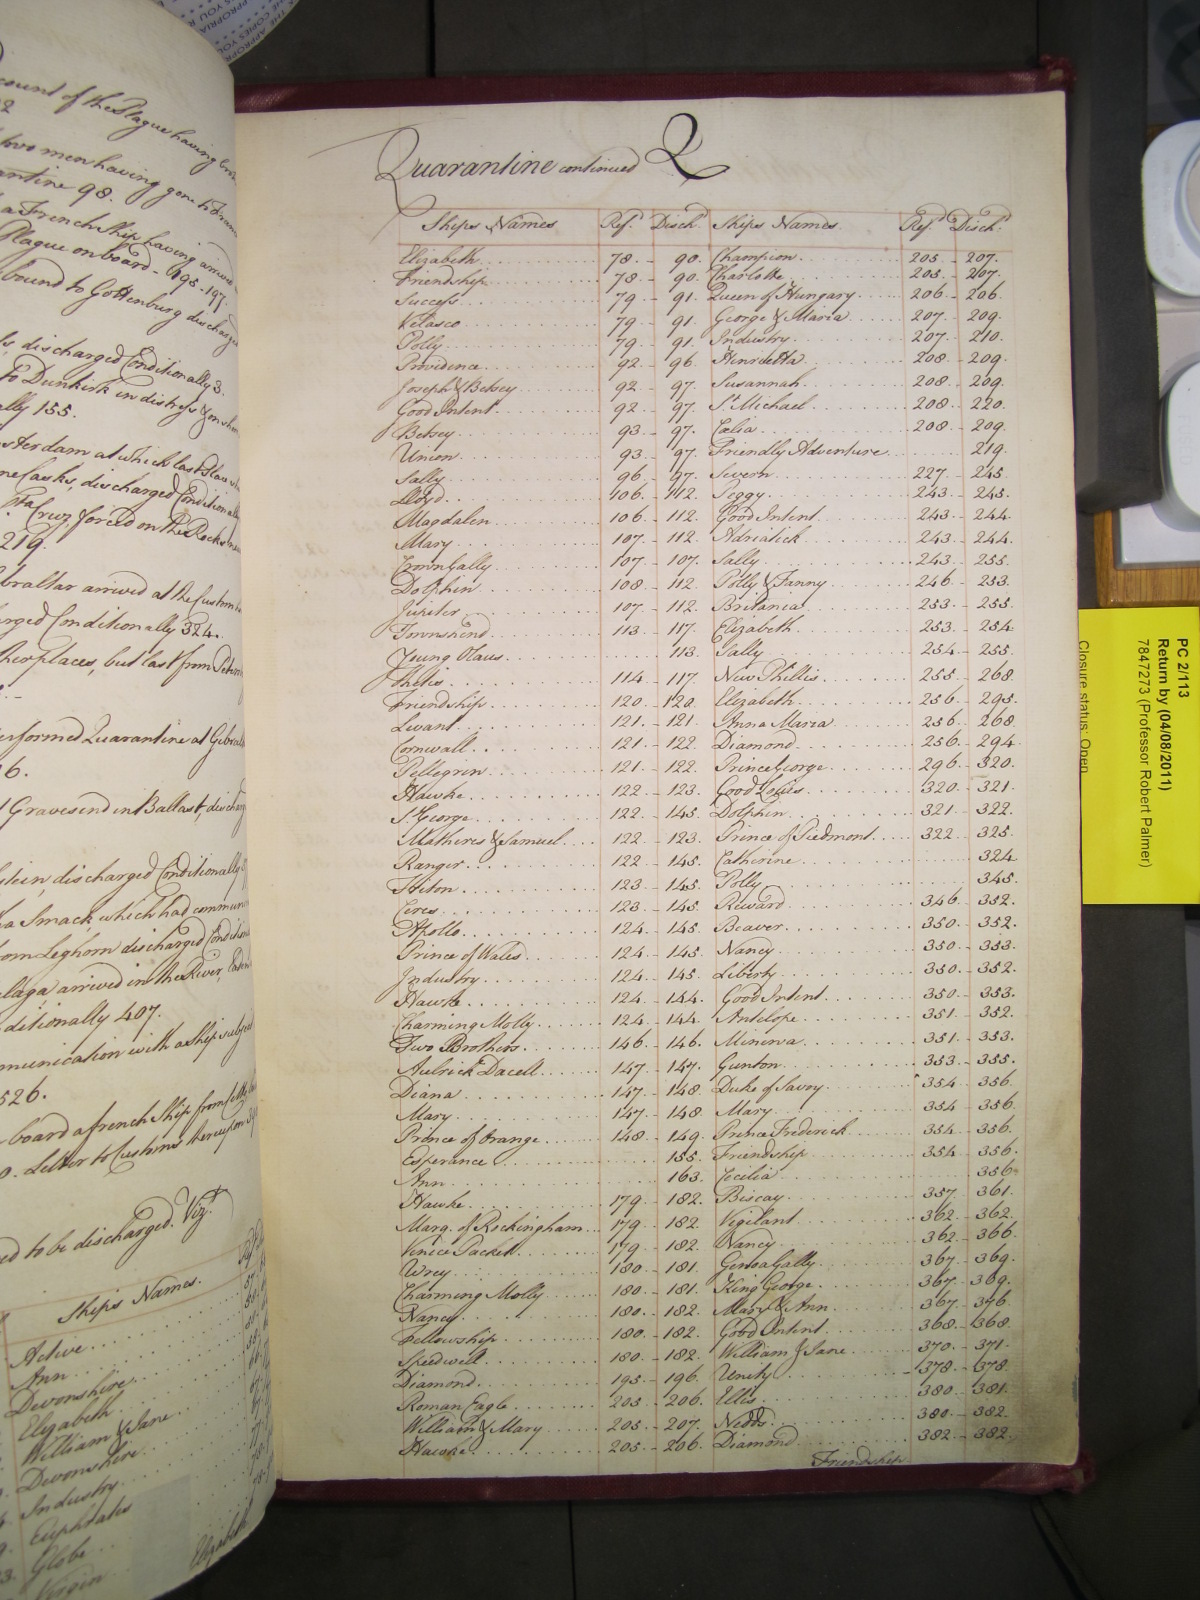 count of the Plague having
women having gone
antine 98.
a French Ship having arrived
Plague on board - 195-197.
bound to Gottenburg discharged
discharged Conditionally 3.
to Dunkirk in distress
lly 155.
sterdam at which last
ne Casks, discharged Conditionally
forced on the Rocks
219.
braltar arrived at the Customs
rged Conditionally 324.
her places, but last from
erformed Quarantine at Gibral
16.
Gravesend in Ballast, discharg
stein, discharged Conditionally
a Smack which had commun
om Leghorn discharged Condition
laga arrived in the River,
ditionally 407.
munication with a Ship subject
526.
board a french Ship from
Letter to Customs thereupon
ed to be discharged. Vizt.
Ships Names.
Active
Ann
Devonshire
Elizabeth
William & Jane
Devonshire
Industry
Euphrates
Globe
Virgin
Elizabeth
Quarantine continued Q
Ships Names Ref. Disch. Ships Names Ref. Disch.
Elizabeth 78. - 90. Champion 205 - 207.
Friendship 78 - 90. Charlotte 205. - 207.
Success 79 - 91. Queen of Hungary 206 - 206.
Velasco 79 - 91. George & Maria 207. - 209.
Polly 79 - 91. Industry 207. - 210.
Providence 92 - 96. Henrietta 208 - 209.
Joseph & Betsey 92 - 97. Susannah 208. - 209.
Good Intent 92 - 97. St. Michael 208. - 220.
Betsey 93 - 97. Cælia 208. - 209.
Union 93. - 97. Friendly Adventure 219.
Sally 96 - 97. Severn 227. - 245.
Lloyd 106. - 112. Peggy 243. - 245.
Magdalen 106 - 112. Good Intent 243. - 244.
Mary 107. - 112. Adriatick 243. - 244.
Crown Gally 107. - 107. Sally 243. - 255.
Dolphin 108 - 112. Polly & Fanny 246. - 253.
Jupiter 107. - 112. Britania 253. - 255.
Townshend 113. - 117. Elizabeth 253. - 254.
Young Olaus 113. Sally 254. - 255.
Thetis 114 - 117. New Phillis 255. - 268.
Friendship 120. - 120. Elizabeth 256. - 295.
Levant 121. - 121. Anna Maria 256. - 268.
Cornwall 121. - 122. Diamond 256. - 294.
Pellegrin 121. - 122. Prince George 296. - 320.
Hawke 122. - 123. Good 320. - 321.
St. George 122. - 145. Dolphin 321. - 322.
Matheres & Samuel 122. - 123. Prince of Piedmont 322. - 325.
Ranger 122. - 145. Catherine 324.
Hiton 123. - 145. Polly 345.
Ceres 123. - 145. Reward 346. - 352.
Apollo 124. - 145. Beaver 350. - 352.
Prince of Wales 124. - 145. Nancy 350. - 353.
Industry 124. - 145. Liberty 350. - 352.
Hawke 124. - 144. Good Intent 350. - 353.
Charming Molly 124. - 144. Antelope 351. - 352.
Two Brothers 146. - 146. Minerva 351. - 353.
Aulrick Dacell 147. - 147. Gunton 353. - 355.
Diana 147. - 148. Duke of Savoy 354. - 356.
Mary 147. - 148. Mary 354. - 356.
Prince of Orange 148. - 149. Prince Frederick 354. - 356.
Esperance 155. Friendship 354. - 356.
Ann 163. Cecilia 356.
Hawke 179. - 182. Biscay 357. - 361.
Marq. of Rockingham 179. - 182. Vigilant 362. - 362.
Venice Packett 179. - 182. Nancy 362. - 366.
Wrey 180. - 181. Genoa Gally 367. - 369.
Charming Molly 180. - 181. King George 367. - 369.
Nancy 180. - 182. Mary & Ann 367. - 376.
Fellowship 180. - 182. Good Intent 368. - 368.
Speedwell 180. - 182. William & Jane 370. - 371.
Diamond 195. - 196. Unity 378. - 378.
Roman Eagle 205. - 206. Ellis 380. - 381.
William & Mary 205. - 207. 380. - 382.
Hawke 205. - 206. Diamond 382. - 382.
Friendship
PC 2/113
Return by (04/08/2011)
7847273 (Professor Robert Palmer)
Closure status: Open